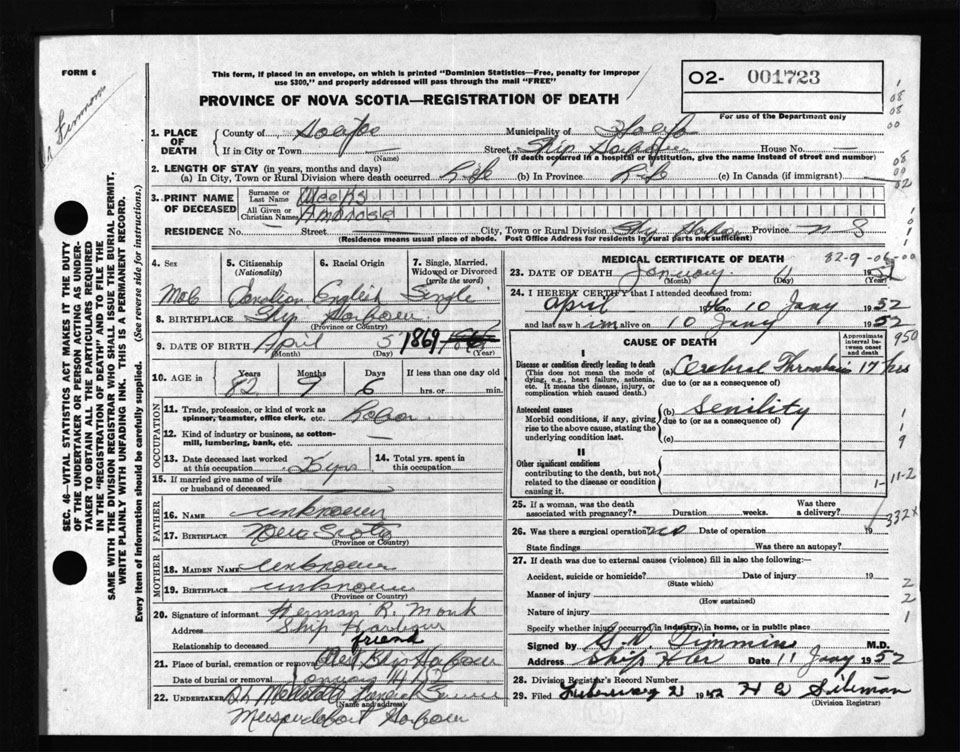 FORM 6
This form, if placed in an envelope, on which is printed "Dominion Statistics—Free, penalty for improper
use $300," and properly addressed will pass through the mail "FREE"
O2- 001723
PROVINCE OF NOVA SCOTIA—REGISTRATION OF DEATH
For use of the Department only
1. PLACE OF DEATH
County of Halifax Municipality of Halifax
If in City or Town — (Name) Street Ship Harbour House No. —
(If death occurred in a hospital or institution, give the name instead of street and number)
2. LENGTH OF STAY (in years, months and days)
(a) In City, Town or Rural Division where death occurred Life (b) In Province Life (c) In Canada (if immigrant)
3. PRINT NAME OF DECEASED
Surname or Last Name Weeks
All Given or Christian Names Ambrose
RESIDENCE No. — Street — City, Town or Rural Division Ship Harbour Province N S
(Residence means usual place of abode. Post Office Address for residents in rural parts not sufficient)
4. Sex Male
5. Citizenship (Nationality) Canadian
6. Racial Origin English
7. Single, Married, Widowed or Divorced (write the word) Single
8. BIRTHPLACE Ship Harbour
(Province or Country)
9. DATE OF BIRTH April (Month) 5 (Day) 1869 (Year)
10. AGE in Years 82 Months 9 Days 6 If less than one day old
hrs. or min.
OCCUPATION
11. Trade, profession, or kind of work as
spinner, teamster, office clerk, etc. Labor
12. Kind of industry or business, as cotton-
mill, lumbering, bank, etc. —
13. Date deceased last worked
at this occupation
14. Total yrs. spent in
this occupation
15. If married give name of wife
or husband of deceased
FATHER
16. NAME unknown
17. BIRTHPLACE Nova Scotia
(Province or Country)
MOTHER
18. MAIDEN NAME unknown
19. BIRTHPLACE unknown
(Province or Country)
20. Signature of informant Herman R. Monk
Address Ship Harbour
Relationship to deceased friend
21. Place of burial, cremation or removal Ship Harbour
Date of burial or removal January
22. UNDERTAKER
(Name and address)
Musquodoboit Harbour
MEDICAL CERTIFICATE OF DEATH
82-9-06-00
23. DATE OF DEATH January (Month) 11 (Day) 1952
24. I HEREBY CERTIFY that I attended deceased from:
April to 10 Jany 1952
and last saw him alive on 10 Jany 1952
CAUSE OF DEATH
Approximate interval between onset and death
950
I
Disease or condition directly leading to death
(This does not mean the mode of
dying, e.g., heart failure, asthenia,
etc. It means the disease, injury, or
complication which caused death.)
(a) Cerebral Thrombosis 17 hrs
due to (or as a consequence of)
Antecedent causes
Morbid conditions, if any, giving
rise to the above cause, stating the
underlying condition last.
(b) Senility
due to (or as a consequence of)
(c)
II
Other significant conditions
contributing to the death, but not
related to the disease or condition
causing it.
1-11-2
25. If a woman, was the death
associated with pregnancy? Duration weeks. Was there a delivery?
332x
26. Was there a surgical operation? no Date of operation 19
State findings Was there an autopsy?
27. If death was due to external causes (violence) fill in also the following:—
Accident, suicide or homicide? Date of injury 19
(State which)
Manner of injury
(How sustained)
Nature of injury
Specify whether injury occurred in industry, in home, or in public place
Signed by Dimmins M.D.
Address Ship Hbr Date 11 Jany 1952
28. Division Registrar's Record Number
29. Filed February 21 1952 H C Sileman
(Division Registrar)
SEC. 46—VITAL STATISTICS ACT MAKES IT THE DUTY
OF THE UNDERTAKER OR PERSON ACTING AS UNDER-
TAKER TO OBTAIN ALL THE PARTICULARS REQUIRED
IN THE "REGISTRATION OF DEATH" AND TO FILE THE
SAME WITH THE DIVISION REGISTRAR WHO SHALL ISSUE THE BURIAL PERMIT.
WRITE PLAINLY WITH UNFADING INK. THIS IS A PERMANENT RECORD.
Every item of information should be carefully supplied. (See reverse side for instructions.)